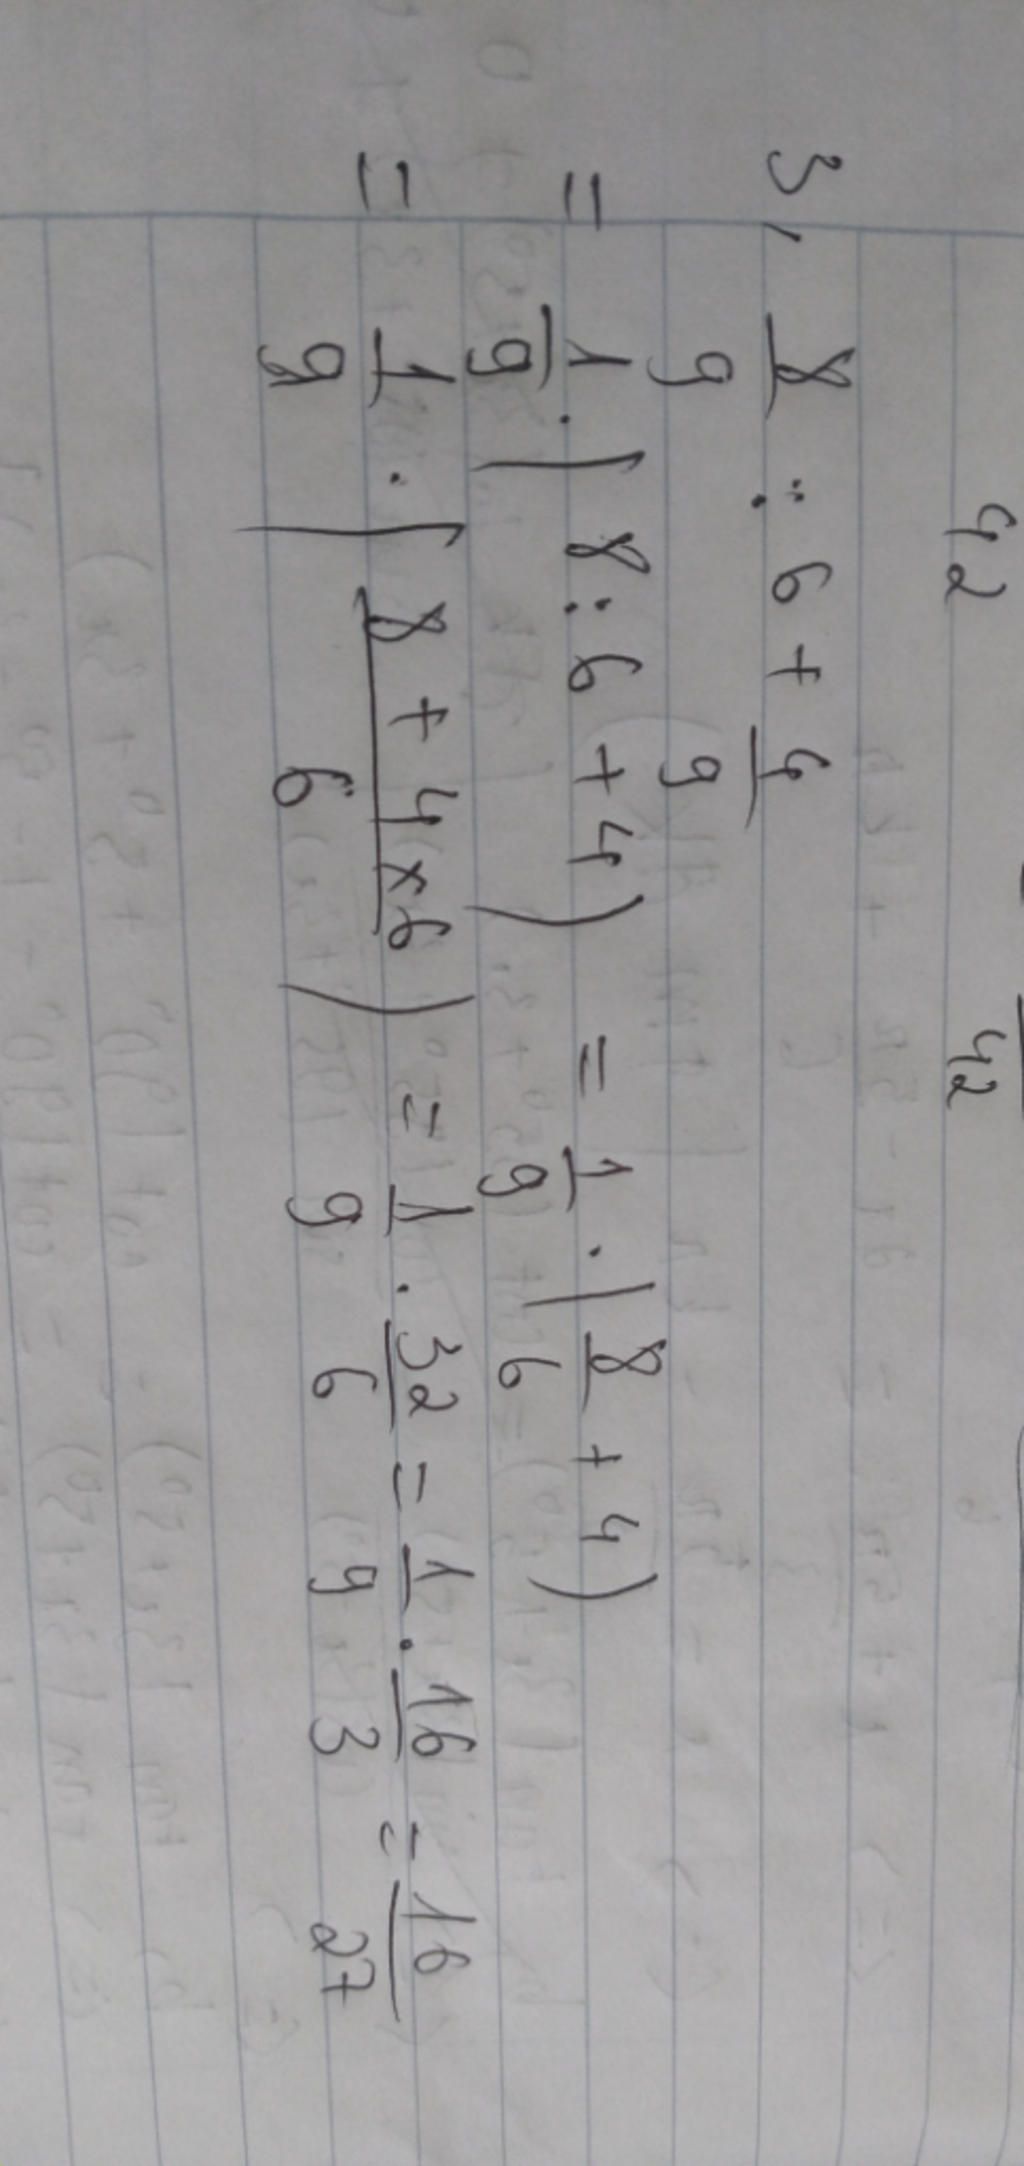 42 42
3, 8/9 : 6 + 4/9
= 1/9 . ( 8 : 6 + 4 ) = 1/9 . ( 8/6 + 4 )
= 1/9 . ( (8 + 4 x 6)/6 ) = 1/9 . 32/6 = 1/9 . 16/3 = 16/27